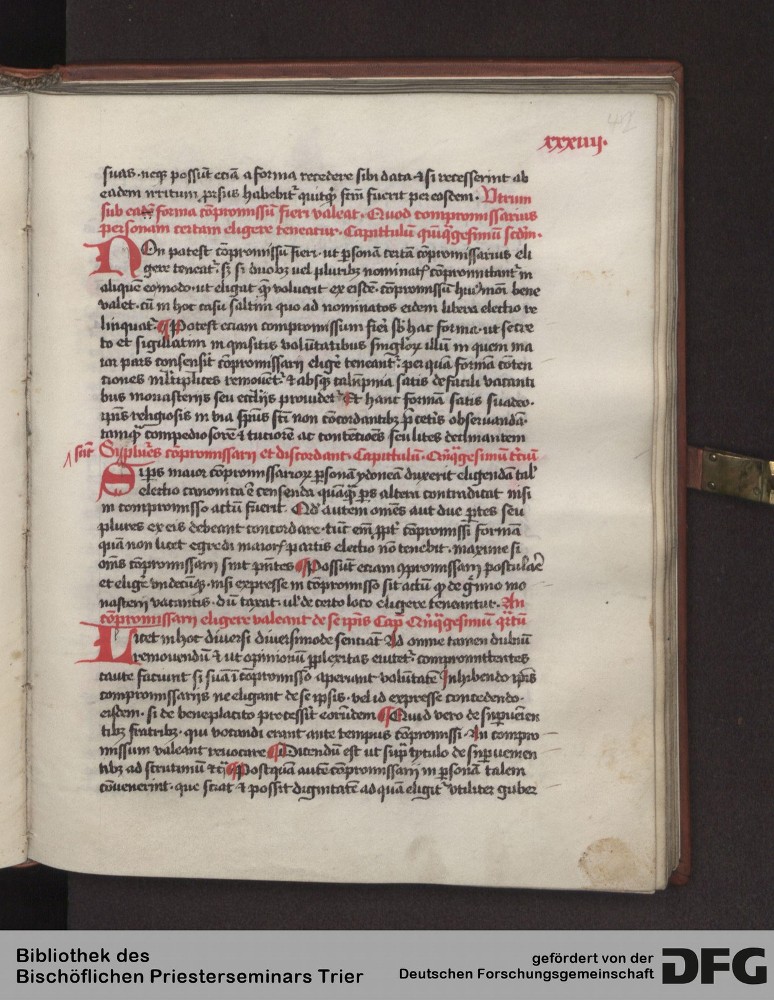 42
xxxiiij.
suas. neqȝ possūt eciā a forma recedere sibi data ⁊ si recesserint ab
eadem irritum prorsus habebit᷑ quitqͥd fcm̄ fuerit per eosdem. Vtrum
sub eadē forma cōpromissū fieri valeat. Quod compromissarius
personam certam eligere teneatur. Capitulū quīq̄gesimū scdm̄.
NOn potest cōpromissū fieri. ut ꝑsonā certā cōpromissarius eli
gere teneat᷑. sȝ si duobȝ uel pluribȝ nominat᷑ cōpromittant᷑ in
alique eomodo. ut eligat que voluerit ex eisdē. cōpromissū huiꝰmōi bene
valet. cū in hoc casu saltim quo ad nominatos eidem libera electio re
linquat᷑. ¶ Potest eciam compromissum fieri sb hac forma. ut secre
to et sigillatim inquisitis volūtatibus singlorȝ illū in quem ma
ior pars consensit cōpromissarij eligere teneant᷑. per quā formā cōten
ciones mltiplices remouet᷑ ⁊ absqȝ satis de facili vacanti
bus monasterijs seu ecclijs prouidet᷑ Et hanc formā satis suadeo.
ip̄is religiosis in via sp̄us scī non cōcordantibȝ p̄ cetis obseruandā.
tamqͣ compediosiorē ⁊ tuciorē ac contēcōes seu lites declinantem
scīt Si plures cōpromissarij et discordant. Capitulū. Qīq̄gesimū tciū
SI ip̄s maior cōpromissariorȝ ꝑsonā ydoneā duxerit eligendā tal
electio canonica ē censenda quāqͣ ps altera contradicat nisi
in compromisso actū fuerit. Qd autem omēs aut due ꝑtes seu
plures ex eis debeant concordare. tūc em̄ ꝓpt᷑ cōpromissi formā
quā non licet egredi maiorȝ partis electio nō tenebit. maxime si
om̄s cōpromissarij sint pn̄tes ¶ Possūt eciam ꝯpromissarij postulare
et eligere vndecūqȝ. nisi expresse in cōpromisso sit actū qd de gremio mo
nasterij vacantis. dū taxat. ul de certo loco eligere teneantur. An
cōpromissarij eligere valeant de se ip̄is Cap̄ Qīq̄gesimū qrtū
LIcet in hoc diuersi diuersimode senciāt Ad omne tamen dubiū
remouendū ⁊ ut opinionū ꝑplexitas euitet᷑. compromittentes
caute faciunt si suā ī cōpromisso aperiant volūtatē Inhibendo ip̄is
compromissarijs ne eligant de se ipsis. vel id expresse concedendo.
eisdem. si de beneplacito processit eorundem ¶ Quid vero de suꝑuenien
tibȝ fratribȝ. qui vocandi erant ante tempus cōpromissi. An compro
missum valeant reuocare ¶ Dicendū est ut supͣ tytulo de suꝑuenien
tibȝ ad scrutiniū ⁊c̄ ¶ Postquā autē cōpromissarij in ꝑsonā talem
cōuenerint. que sciat ⁊ possit dignitatē ad quā eligit᷑ vtiliter guber
Bibliothek des
Bischöflichen Priesterseminars Trier
gefördert von der
Deutschen Forschungsgemeinschaft
DFG